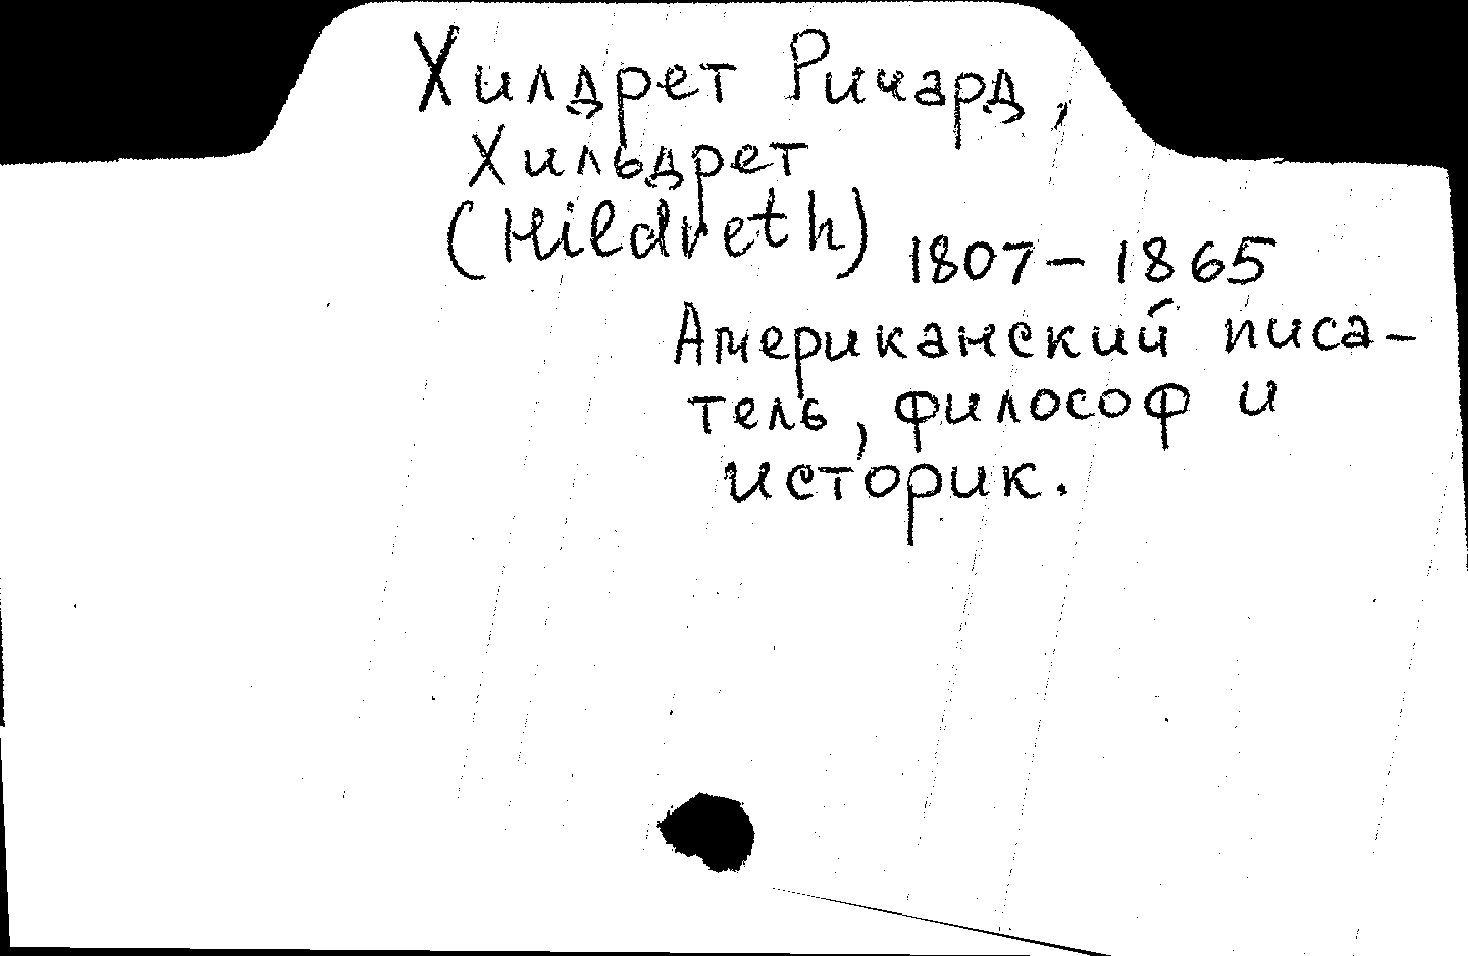 Хилдрет Ричард,
Хильдрет
(Hildreth) 1807-1865
Американский писа-
тель, философ и
историк.